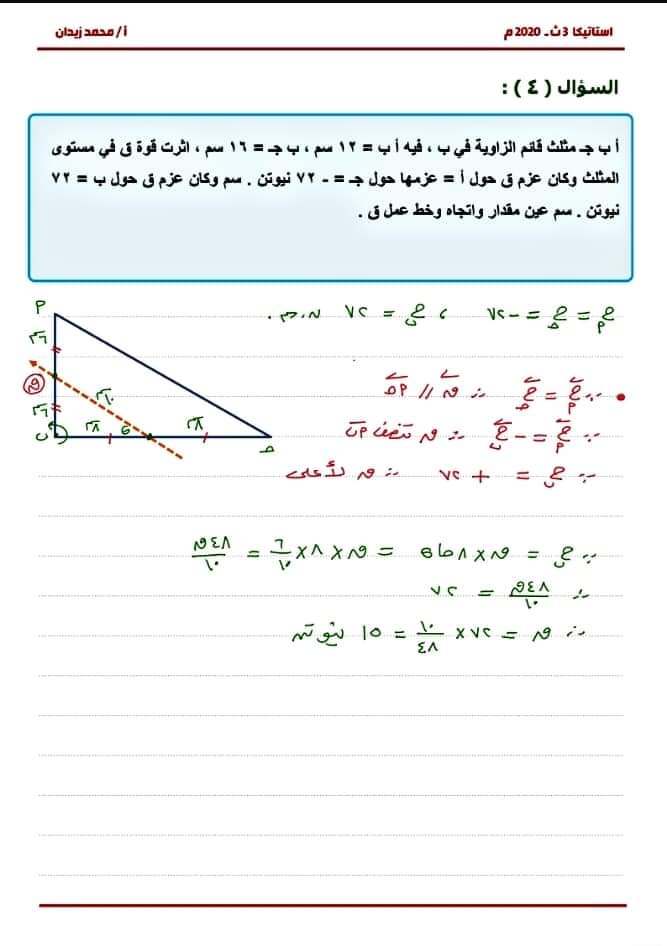 استاتيكا 3 ث ـ 2020 م
أ / محمد زيدان
السؤال ( ٤ ) :
أ ب جـ مثلث قائم الزاوية في ب ، فيه أ ب = ١٢ سم ، ب جـ = ١٦ سم ، اثرت قوة ق في مستوى
المثلث وكان عزم ق حول أ = عزمها حول جـ = - ٧٢ نيوتن . سم وكان عزم ق حول ب = ٧٢
نيوتن . سم عين مقدار واتجاه وخط عمل ق .
ج م = ج ح = - ٧٢ ، ج ب = ٧٢ ن.سم .
∵ ج م = ج ح ∴ ق // م ح
∵ ج م = - ج ب ∴ ق تنصف م ب
∵ ج ب = + ٧٢ ∴ ق لأعلى
∵ ج ب = ق × ٨ حا ه = ق × ٨ × ٦/١٠ = ٤٨ ق/١٠
∴ ٤٨ ق/١٠ = ٧٢
∴ ق = ٧٢ × ١٠/٤٨ = ١٥ نيوتن